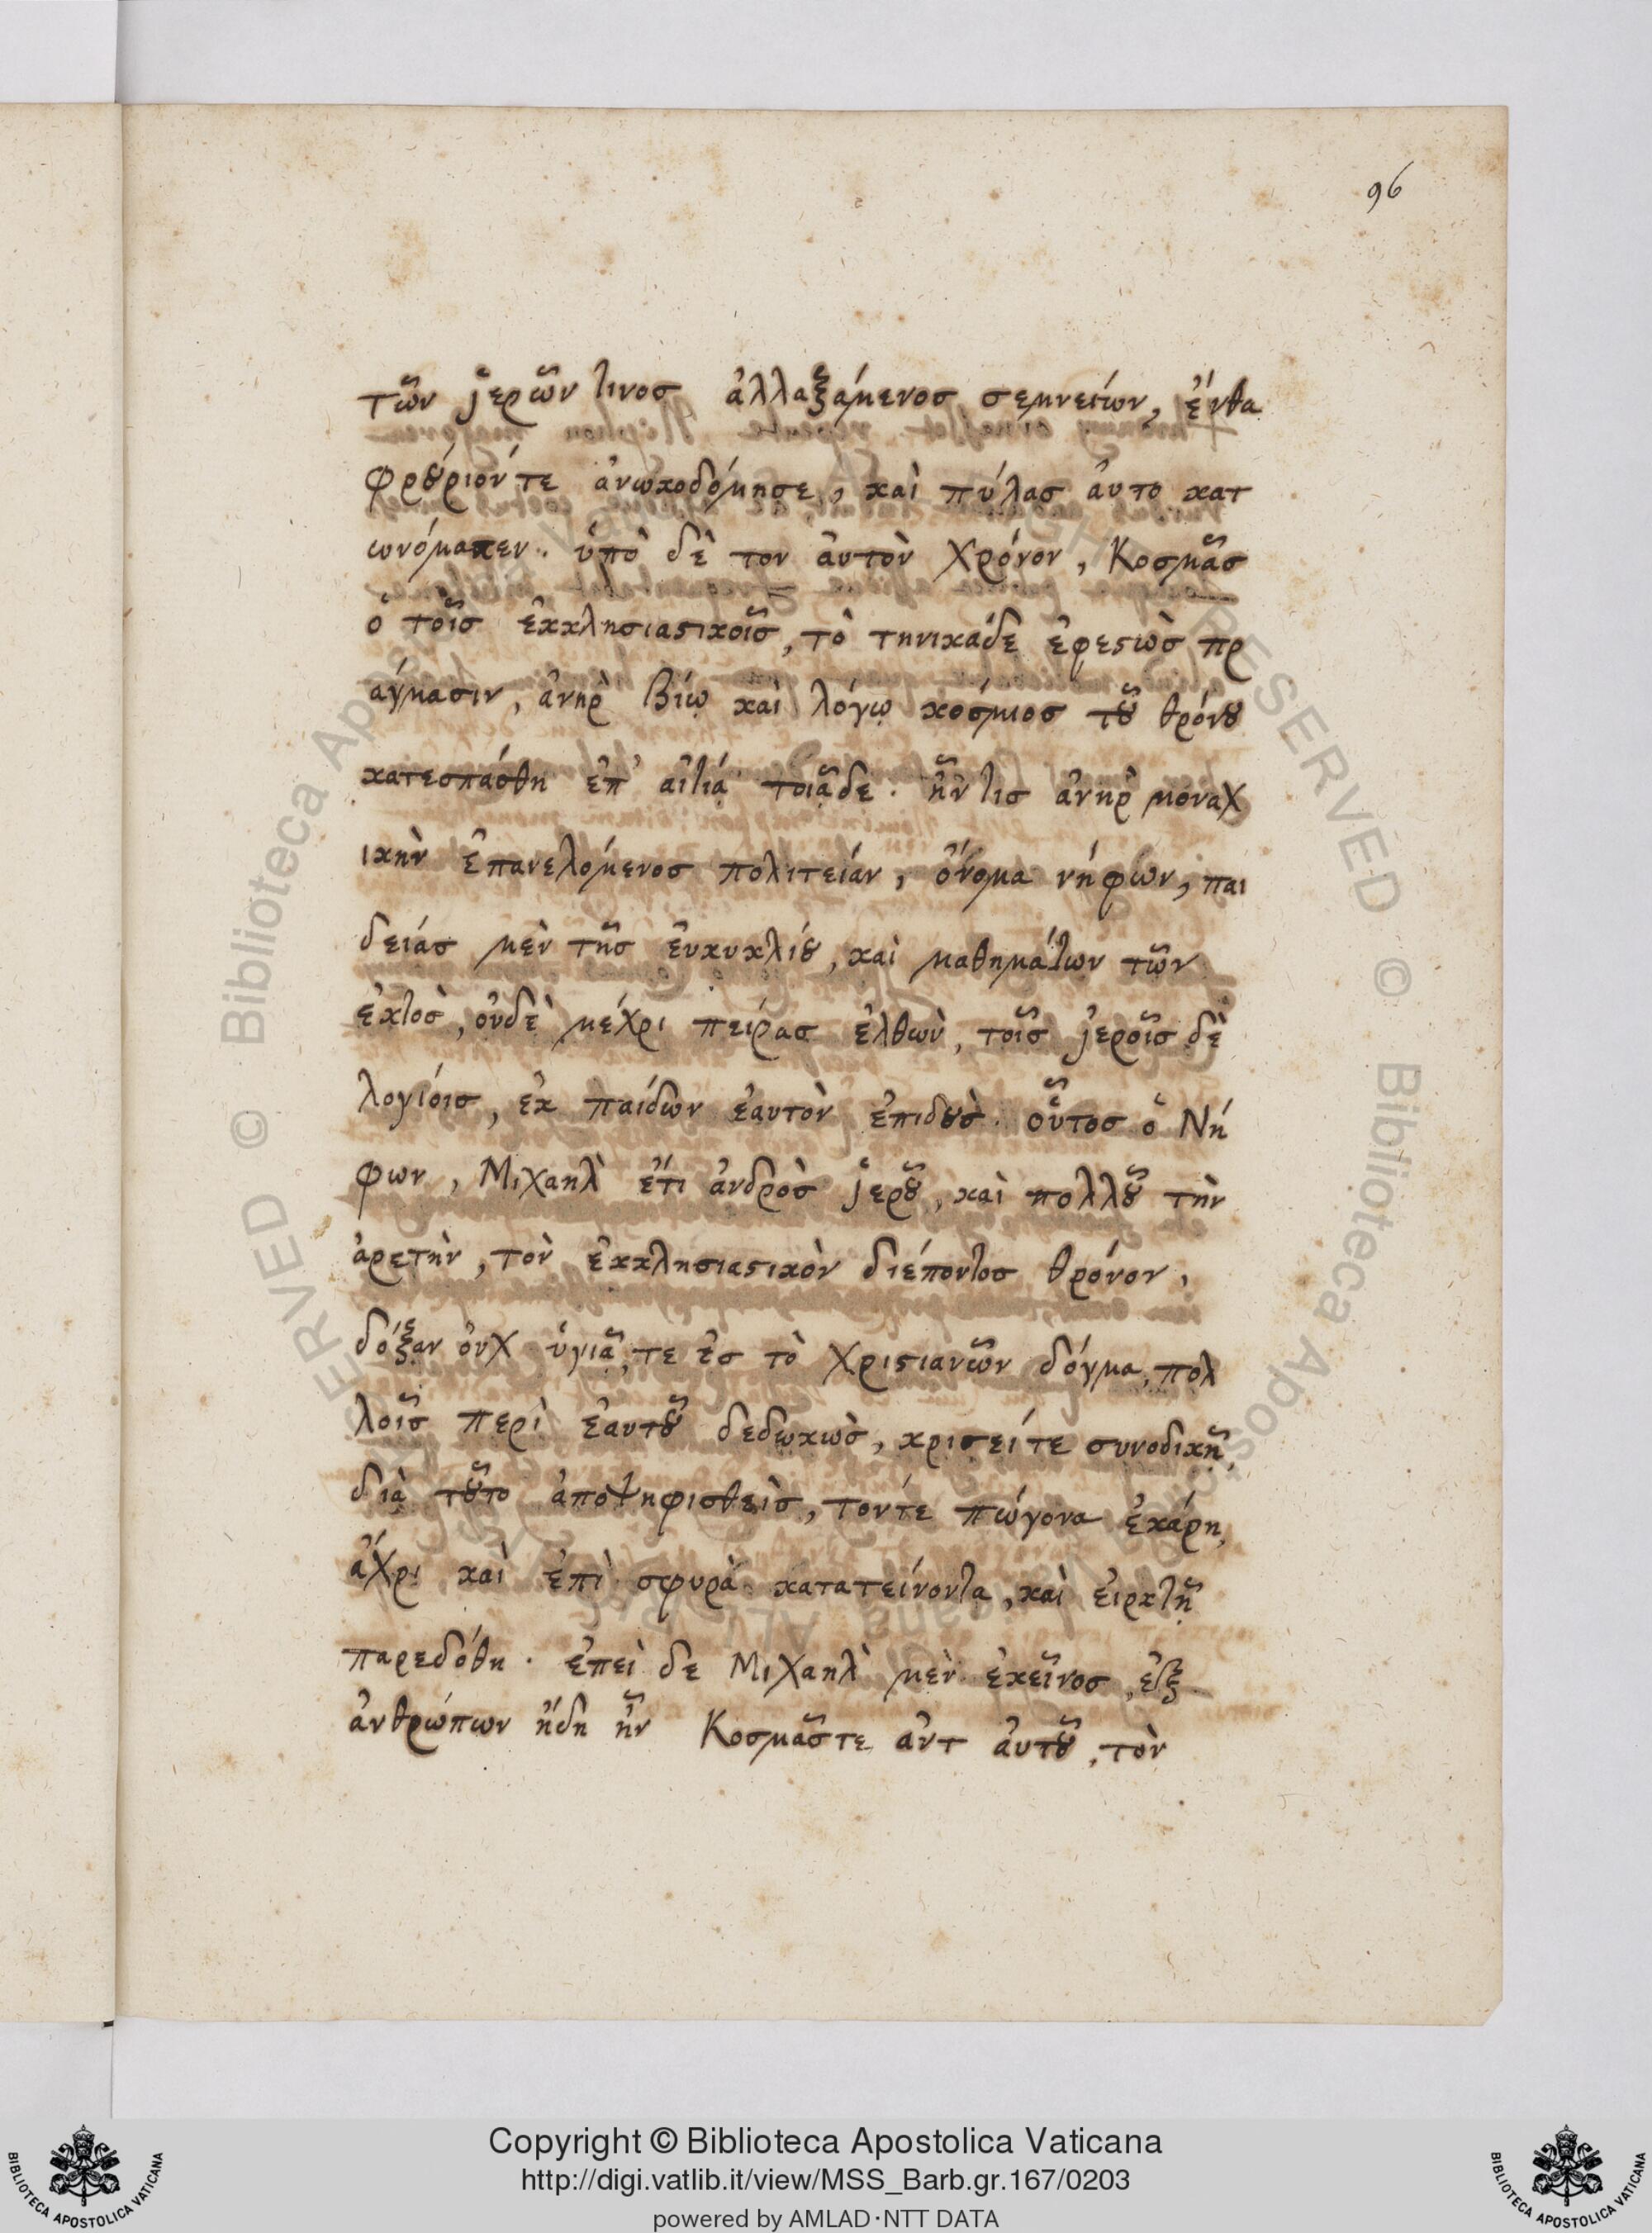 96
τῶν ἱερῶν τινοσ ἀλλαξάμενοσ σεμνείων, ἔνθα
φρούριόντε ἀνωκοδόμησε, καὶ πύλασ ἀυτο κατ
ωνόμακεν. ὑπὸ δὲ τον ἀυτὸν χρόνον, Κοσμᾶσ
ὁ τοῖσ ἐκκλησιαϛικοῖσ, τὸ τηνικάδε ἐφεϛὼσ πρ
άγμασιν, ἀνὴρ βίῳ καὶ λόγῳ κόσμιοσ τοῦ θρόνου
κατεσπάσθη ἐπ' αἰτίᾳ τοιᾷδε. ἦν τισ ἀνὴρ μοναχ
ικὴν ἐπανελόμενοσ πολιτείαν, ὄνομα νήφων, παι
δείασ μὲν τῆσ ἐνκυκλίου, καὶ μαθημάτων τῶν
ἐκτὸσ, ὀυδὲ μέχρι πείρασ ἐλθὼν, τοῖσ ἱεροῖσ δὲ
λογίοισ, ἐκ παίδων ἑαυτὸν ἐπιδοὺσ. οὗτοσ ὁ Νή
φων, Μιχαὴλ ἔτι ἀνδρὸσ ἱεροῦ, καὶ πολλοῦ τὴν
ἀρετὴν, τὸν ἐκκλησιαϛικὸν διέποντοσ θρόνον,
δόξαν ὀυχ ὑγιᾶ, τε ἐσ τὸ χριϛιανῶν δόγμα, πολ
λοῖσ περὶ ἑαυτοῦ δεδωκὼσ, κρισείτε συνοδικῇ,
διὰ τοῦτο ἀποψηφισθεὶσ, τόντε πώγονα ἐκάρη,
ἄχρι καὶ ἐπὶ σφυρὰ κατατείνοντα, καὶ εἱρκτῇ
παρεδόθη. ἐπεὶ δε Μιχαὴλ μὲν ἐκεῖνοσ, ἐξ
ἀνθρώπων ἤδη ἦν Κοσμᾶστε ἀντ ἀυτοῦ, τὸν
Copyright © Biblioteca Apostolica Vaticana
http://digi.vatlib.it/view/MSS_Barb.gr.167/0203
powered by AMLAD·NTT DATA